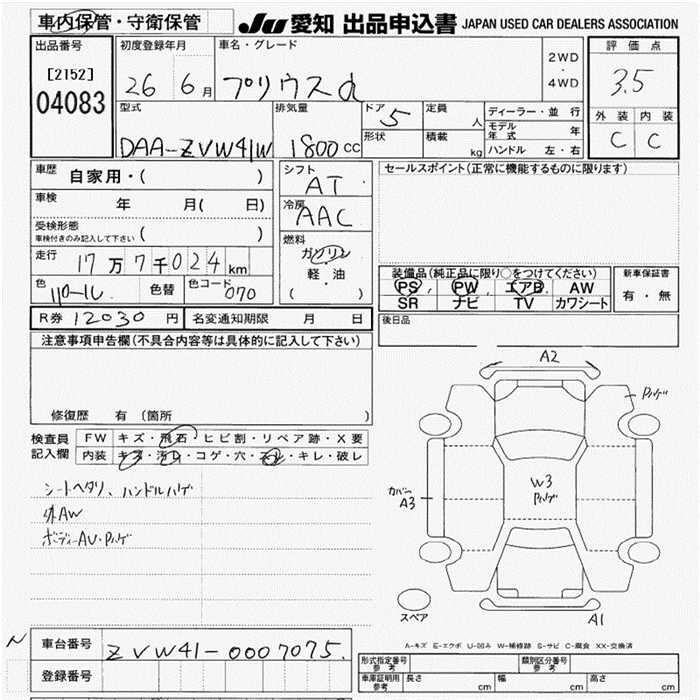 車内保管・守衛保管
JU 愛知 出品申込書 JAPAN USED CAR DEALERS ASSOCIATION
出品番号
[2152]
04083
初度登録年月
26 6月
車名・グレード
プリウスα
2WD
・
4WD
評価点
3.5
外装 内装
C C
型式
DAA-ZVW41W
排気量
1800cc
ドア 5
形状
定員 人
積載 kg
ディーラー・並行
モデル年式 年
ハンドル 左・右
車歴 自家用・( )
車検 年 月( 日)
受検形態
車検付きのみ記入して下さい ( )
走行 17万7千024km
色 パール 色替 色コード 070
シフト
AT
冷房
AAC
燃料
ガソリン
軽・油
( )
セールスポイント(正常に機能するものに限ります)
装備品(純正品に限り○をつけてください)
PS PW エアB AW
SR ナビ TV カワシート
新車保証書
有・無
R券 12030円 名変通知期限 月 日
後日品
注意事項申告欄(不具合内容等は具体的に記入して下さい)
修復歴 有 (箇所 )
検査員記入欄
FW キズ・飛石・ヒビ割・リペア跡・X要
内装 キズ・汚レ・コゲ・穴・スレ・キレ・破レ
シートヘタリ、ハンドルハゲ
外AW
ボディーAU・Pハゲ
A2
Pハゲ
カバー
A3
W3
Pハゲ
スペア
A1
A-キズ E-エクボ U-凹み W-補修跡 S-サビ C-腐食 XX-交換済
N
車台番号 ZVW41-0007075.
登録番号
形式指定番号 参考
類別区分番号 参考
車庫証明用 参考 長さ cm 幅 cm 高さ cm